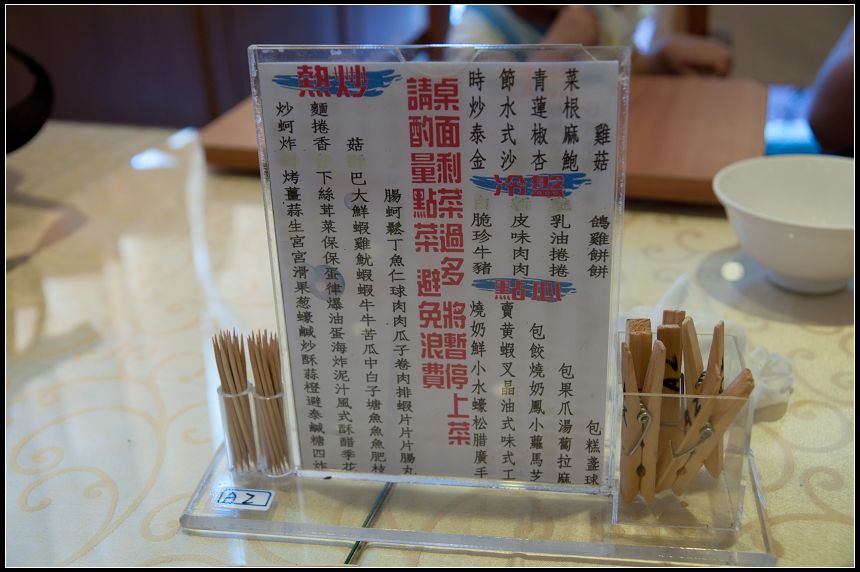 熱炒
炒麵
蚵捲
炸香菇
烤下巴
薑絲大腸
蒜茸鮮蚵
生菜蝦鬆
宮保雞丁
宮保魷魚
滑蛋蝦仁
果律蝦球
葱爆牛肉
蠔油牛肉
鹹蛋苦瓜
炒海瓜子
酥炸中卷
蒜泥白肉
橙汁子排
避風塘蝦
泰式魚片
鹹酥魚片
糖醋魚片
四季肥腸
炸花枝丸
桌面剩菜過多 將暫停上菜
請酌量點菜 避免浪費
時節青菜
炒水蓮根
泰式椒麻雞
金沙杏鮑菇
冷盤
脆皮乳鴿
珍味油雞
牛肉捲餅
豬肉捲餅
點心
燒賣
奶黃包
鮮蝦餃
小叉燒包
水晶奶果
蠔油鳳爪
松式小湯包
腊味蘿蔔糕
廣式馬拉盞
手工芝麻球
A2
A2